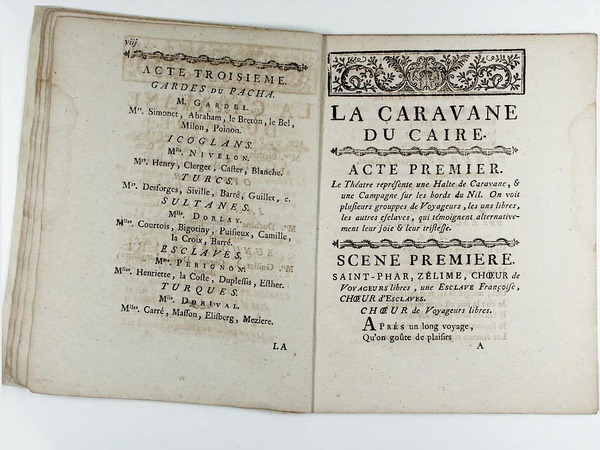 viij
ACTE TROISIEME.
GARDES DU PACHA.
M. GARDEL.
Mrs. Simonet, Abraham, le Breton, le Bel,
Milon, Poinon.
ICOGLANS.
Mlle. NIVELON.
Mrs. Henry, Clerget, Caster, Blanche.
TURCS.
Mrs. Desforges, Siville, Barré, Guillet, c.
SULTANES.
Mlle. DORLAY.
Mlles. Courtois, Bigotiny, Puisieux, Camille,
la Croix, Barré.
ESCLAVES.
Mme. PÉRIGNOM.
Mlles. Henriette, la Coste, Duplessis, Esther.
TURQUES.
Mlle. DORIVAL.
Mlles. Carré, Masson, Elisberg, Meziere.
LA
LA CARAVANE
DU CAIRE.
ACTE PREMIER.
Le Théatre représente une Halte de Caravane, &
une Campagne sur les bords du Nil. On voit
plusieurs grouppes de Voyageurs, les uns libres,
les autres esclaves, qui témoignent alternative-
ment leur joie & leur tristesse.
SCENE PREMIERE.
SAINT-PHAR, ZÉLIME, CHŒUR de
VOYAGEURS libres, une ESCLAVE Françoise,
CHŒUR d'ESCLAVES.
CHŒUR de Voyageurs libres.
APRÈS un long voyage,
Qu'on goûte de plaisirs
A